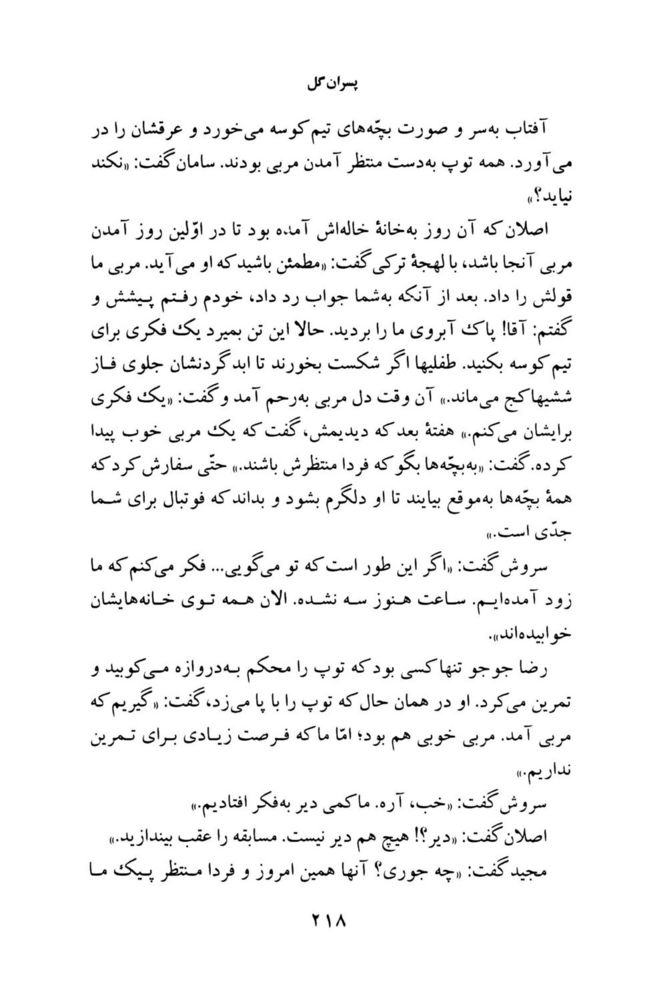 پسران گل
آفتاب به‌سر و صورت بچّه‌های تیم کوسه می‌خورد و عرقشان را در
می‌آورد. همه توپ به‌دست منتظر آمدن مربی بودند. سامان گفت: «نکند
نیاید؟»
اصلان که آن روز به‌خانهٔ خاله‌اش آمده بود تا در اوّلین روز آمدن
مربی آنجا باشد، با لهجهٔ ترکی گفت: «مطمئن باشید که او می‌آید. مربی ما
قولش را داد. بعد از آنکه به‌شما جواب رد داد، خودم رفتم پیشش و
گفتم: آقا! پاک آبروی ما را بردید. حالا این تن بمیرد یک فکری برای
تیم کوسه بکنید. طفلیها اگر شکست بخورند تا ابد گردنشان جلوی فاز
ششیها کج می‌ماند.» آن وقت دل مربی به‌رحم آمد و گفت: «یک فکری
برایشان می‌کنم.» هفتهٔ بعد که دیدیمش، گفت که یک مربی خوب پیدا
کرده. گفت: «به‌بچّه‌ها بگو که فردا منتظرش باشند.» حتّی سفارش کرد که
همهٔ بچّه‌ها به‌موقع بیایند تا او دلگرم بشود و بداند که فوتبال برای شما
جدّی است.»
سروش گفت: «اگر این طور است که تو می‌گویی... فکر می‌کنم که ما
زود آمده‌ایم. ساعت هنوز سه نشده. الان همه توی خانه‌هایشان
خوابیده‌اند».
رضا جوجو تنها کسی بود که توپ را محکم به‌دروازه می‌کوبید و
تمرین می‌کرد. او در همان حال که توپ را با پا می‌زد، گفت: «گیریم که
مربی آمد. مربی خوبی هم بود؛ امّا ما که فرصت زیادی برای تمرین
نداریم.»
سروش گفت: «خب، آره. ما کمی دیر به‌فکر افتادیم.»
اصلان گفت: «دیر؟! هیچ هم دیر نیست. مسابقه را عقب بیندازید.»
مجید گفت: «چه جوری؟ آنها همین امروز و فردا منتظر پیک ما
۲۱۸